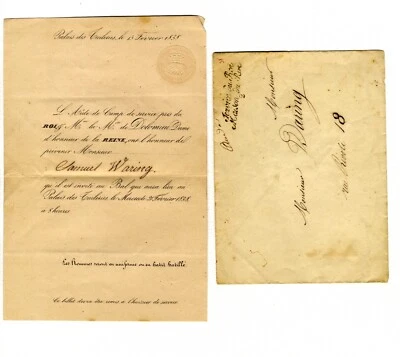 Palais des Tuileries, le 15 Février 1838
L'Aide de Camp de service près du
ROI, & Me. la Mse. de Dolomieu Dame
d'honneur de la REINE, ont l'honneur de
prévenir Monsieur
Samuel Waring
qu'il est invité au Bal qui aura lieu au
Palais des Tuileries, le Mercredi Février 1838
à 8 heures
Les Hommes seront en uniforme ou en habit habillé.
Ce billet devra être remis à l'huissier de service
Monsieur
Monsieur Waring
rue Rivoli 18
Service du Roi